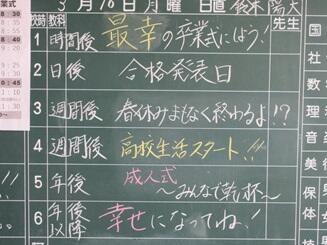 3月10日月曜 日直
先生
時
教科
1 時間後 最幸の卒業式にしよう!
2 日後 合格発表日
3 週間後 春休みまもなく終わるよ!?
4 週間後 高校生活スタート!!
5 年後 成人式
~みんなで乾杯~
6 年後以降 幸せになってね!
国
社
数
理
音
美
保
技
英
8:30
8:40